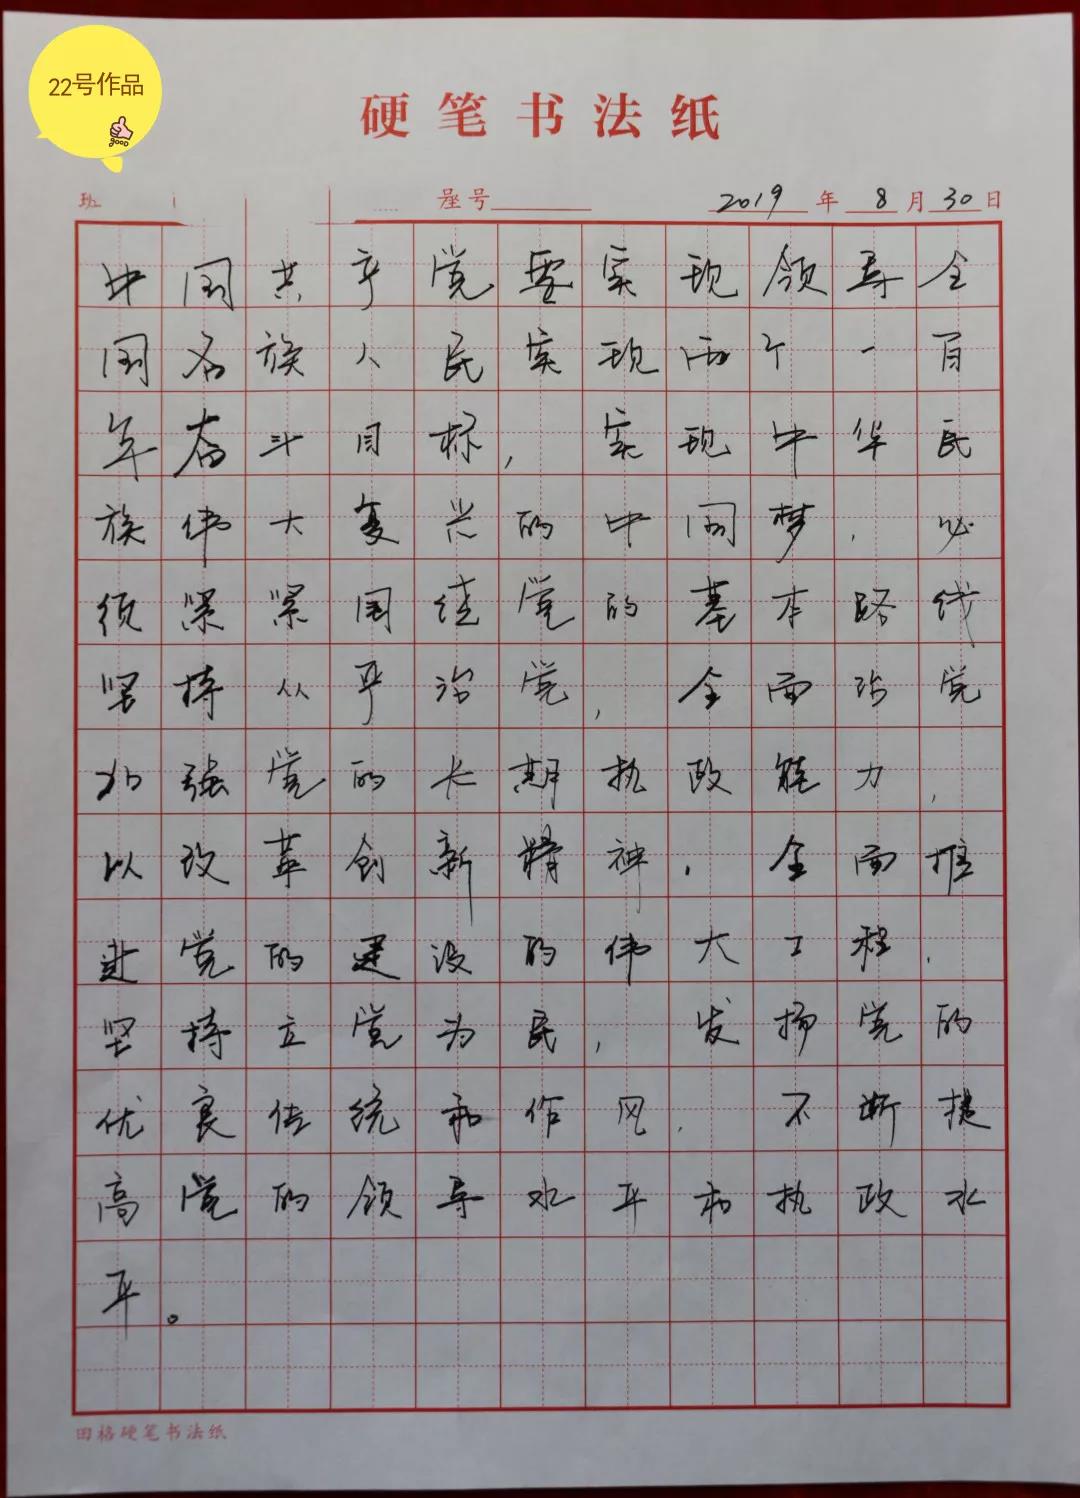 22号作品
good
硬笔书法纸
班 座号 2019年8月30日
中国共产党要实现领导全
国各族人民实现两个一百
年奋斗目标,实现中华民
族伟大复兴的中国梦,必
须紧紧围绕党的基本路线
坚持从严治党,全面治党
加强党的长期执政能力,
以改革创新精神,全面推
进党的建设的伟大工程,
坚持立党为民,发扬党的
优良传统和作风,不断提
高党的领导水平和执政水
平。
田格硬笔书法纸